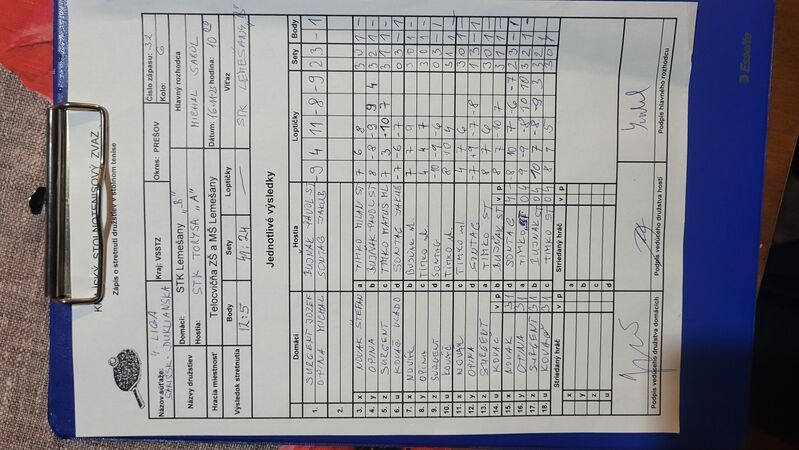 KRAJSKÝ STOLNOTENISOVÝ ZVAZ
Zápis o stretnutí družstiev v stolnom tenise
Názov súťaže: 4 LIGA Kraj: VSSTZ Okres: PREŠOV Číslo zápasu: 32
DUKLIANSKA Kolo: 6
Názvy družstiev Domáci: STK Lemešany "B" Hlavný rozhodca
Hostia: STK TORYSA "A" MICHAL
Hracia miestnosť Telocvičňa ZŠ a MŠ Lemešany Dátum: hodina: 10 00
Výsledok stretnutia Body Sety Loptičky Víťaz
12:5 41:24 STK LEMEŠANY "B"
Jednotlivé výsledky
Domáci Hostia Loptičky Sety Body
1. SURGENT JOZEF BUJŇÁK PAVOL ST 9 4 11 -8 -9 2 3 - 1
OPINA MICHAL SONTÁG JAKUB
2.
3. x NOVÁK ŠTEFAN a TIMKO MILAN ST 7 6 8 3 0 1 -
4. y OPINA b BUJŇÁK PAVOL ST 8 -8 -9 9 4 3 2 1 -
5. z SURGENT c TIMKO 7 3 -10 7 3 1 1 -
6. u KOVÁČ VLADO d SONTÁG JAKUB -7 -6 -7 0 3 - 1
7. x NOVÁK b 7 7 9 3 0 1 -
8. y OPINA c TIMKO 4 4 7 3 0 1 -
9. z SURGENT d SONTÁG -10 -9 -6 0 3 - 1
10. u KOVÁČ a TIMKO 8 -10 9 4 3 1 1 -
11. x NOVÁK c TIMKO ml 4 7 6 3 0 1 -
12. y OPINA d SONTÁG -7 -7 -8
13. z SURGENT a TIMKO ST 8 7 6 3 0 1 -
14. u KOVÁČ b BUJŇÁK ST 8 7 -10 7 3 1 1 -
v p v p
15. x NOVÁK 3 1 d SONTÁG -8 10 7 -6 -7 2 3 - 1
16. y OPINA 3 1 a TIMKO ST 0 4 9 -9 -8 10 10 3 2 1 -
17. z SURGENT 3 1 b BUJŇÁK ST 0 4 10 7 -8 -9 3 3 2 1 -
18. u KOVÁČ 3 1 c TIMKO 0 4 8 7 5 3 0 1
Striedaný hráč v p Striedaný hráč v p
x a
y b
z c
u d
Podpis vedúceho družstva domácich Podpis vedúceho družstva hostí Podpis hlavného rozhodcu
Esselte